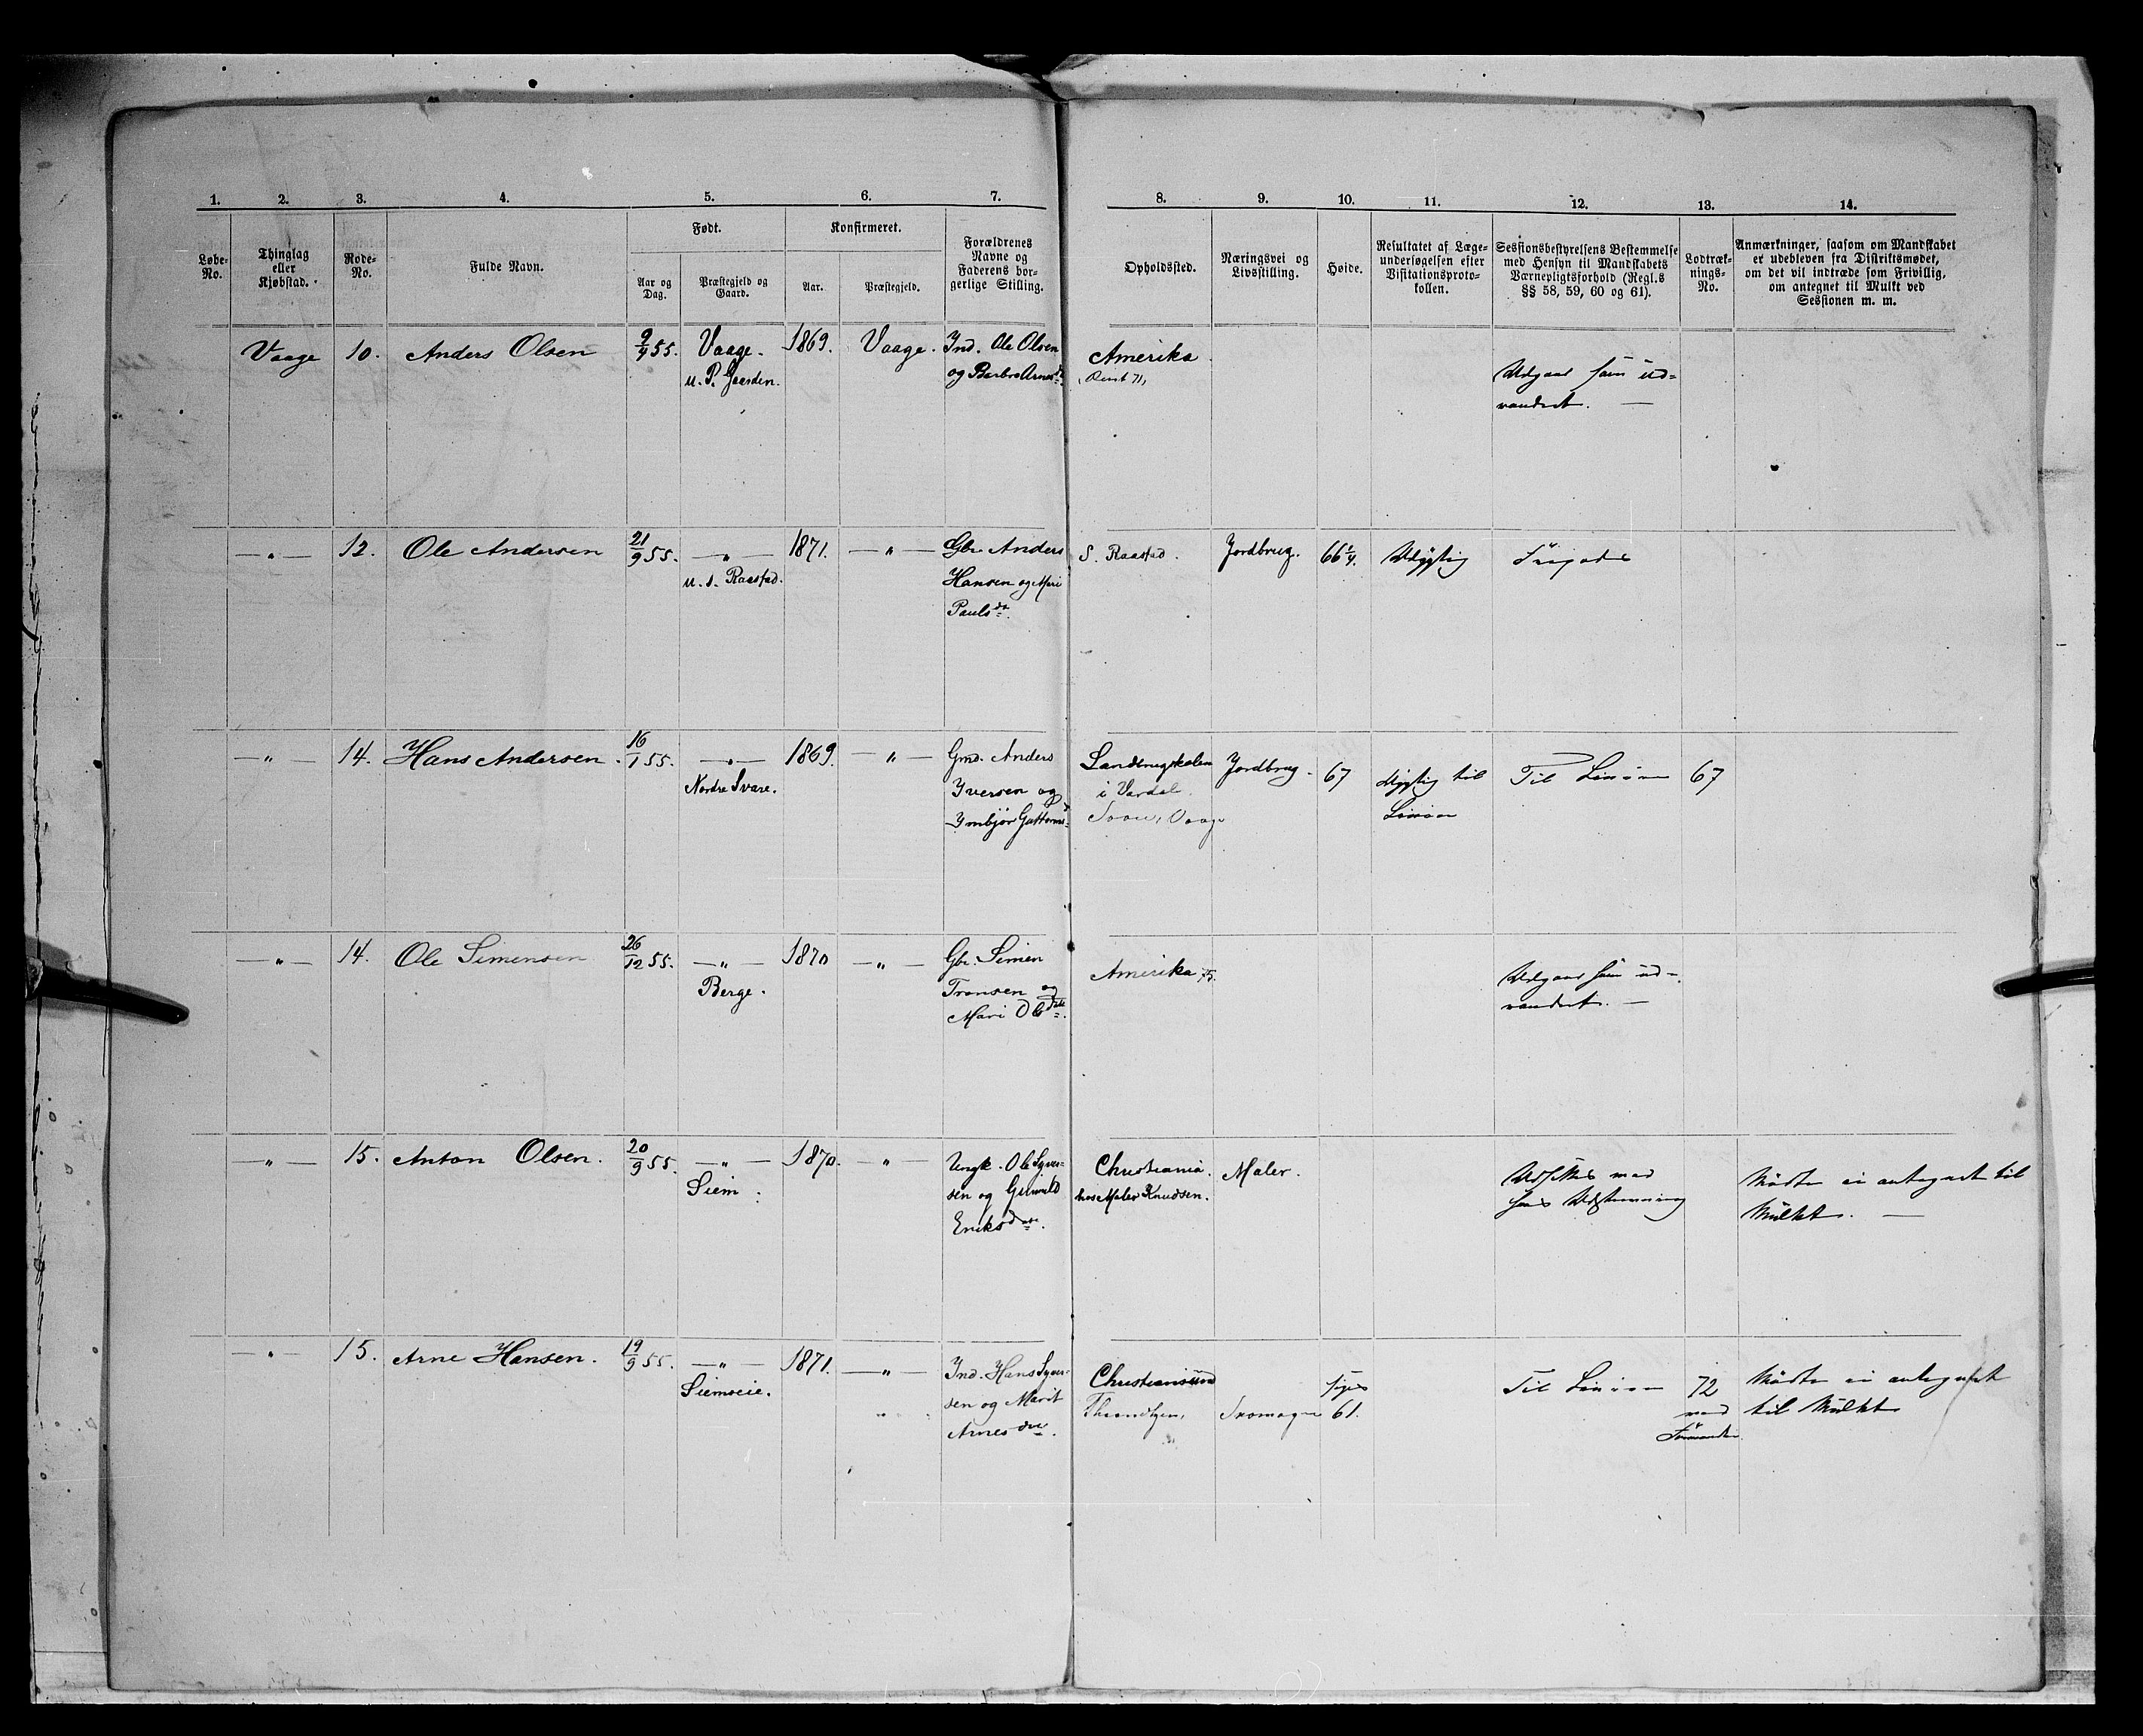 1. 2. 3. 4. 5. 6. 7. 8. 9. 10. 11. 12. 13. 14.
Løbe-
No.
Thinglag
eller
Kjøbstad.
Rode-
No.
Fulde Navn.
Født.
Aar og
Dag.
Præstegjeld og
Gaard.
Konfirmeret.
Aar.
Præstegjeld.
Forældrenes
Navne og
Faderens bor-
gerlige Stilling.
Opholdssted.
Næringsvei og
Livsstilling.
Høide.
Resultatet af Læge-
undersøgelsen efter
Visitationsproto-
kollen.
Sessionsbestyrelsens Bestemmelse
med Hensyn til Mandskabets
Værnepligtsforhold (Regl.s
§§ 58, 59, 60 og 61).
Lodtræk-
nings-
No.
Anmærkninger, saasom om Mandskabet
er udebleven fra Distriktsmødet,
om det vil indtræde som Frivillig,
om antegnet til Mulkt ved
Sessionen m. m.
Vaage 10. Anders Olsen 9/4 55. Vaage. 1869. Vaage. Ind. Ole Olsen
u. P. Gaarden. og Barbro Arnesd
Amerika
Udgaar som ud-
vandret. —
—„— 12. Ole Andersen 21/9 55. —„— 1871. —„— Gbr Anders
u. s. Raastad. Hansen og Mari
Paulsdr.
S. Raastad. Jordbrug. 66 2/4. Udygtig
—„— 14. Hans Andersen. 16/1 55. —„— 1869. —„— Gmd. Anders
Nordre Svare. Iversen og
Imbjør Guttormsd
Landbrugskolen Jordbrug. 67 dygtig til Til Linien 67
i Vardal. Linien
Vaage
—„— 14. Ole Simensen 26/12 55. —„— 1870 —„— Gbr. Simen
Berge. Tronsen og
Mari Olsdtr.
Amerika 75. Udgaar som ud-
vandret. —
—„— 15. Anton Olsen. 20/9 55. —„— 1870. —„— Ungk. Ole Syver-
Siem. sen og Gunild
Eriksdtr.
Christiania. Maler.
hos Maler Knudsen.
Mødte ei antegnet til
Mulkt. —
—„— 15. Arne Hansen. 19/9 55. —„— 1871. —„— Ind. Hans Syver-
Siemseie. sen og Marit
Arnesdtr.
Christianssund Til Linien 72 Mødte ei antegnet
Throndhjem, Skomager 61. med til Mulkt